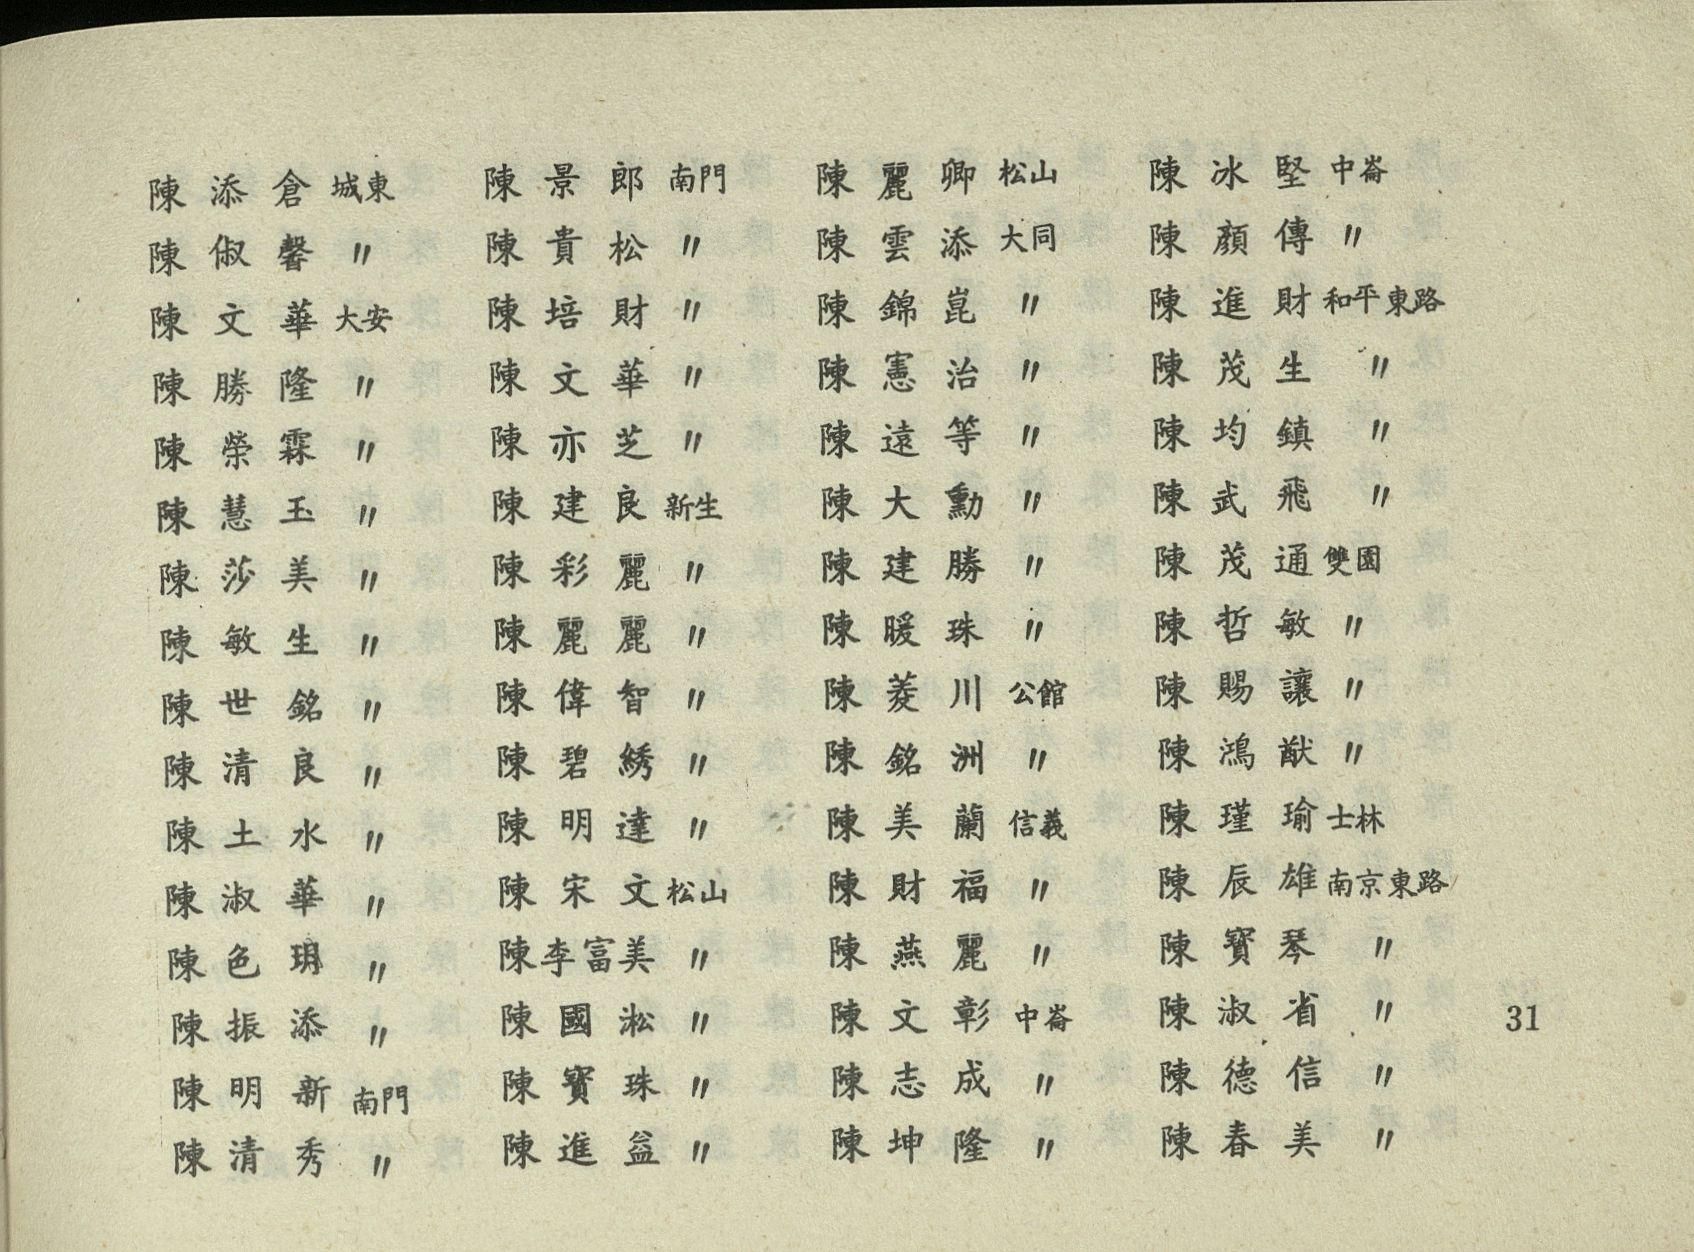 陳添倉 城東
陳俶馨 〃
陳文華 大安
陳勝隆 〃
陳榮霖 〃
陳慧玉 〃
陳莎美 〃
陳敏生 〃
陳世銘 〃
陳清良 〃
陳土水 〃
陳淑華 〃
陳色玥 〃
陳振添 〃
陳明新 南門
陳清秀 〃
陳景郎 南門
陳貴松 〃
陳培財 〃
陳文華 〃
陳亦芝 〃
陳建良 新生
陳彩麗 〃
陳麗麗 〃
陳偉智 〃
陳碧綉 〃
陳明達 〃
陳宋文 松山
陳李富美 〃
陳國淞 〃
陳寶珠 〃
陳進益 〃
陳麗卿 松山
陳雲添 大同
陳錦崑 〃
陳憲治 〃
陳遠等 〃
陳大勳 〃
陳建勝 〃
陳暖珠 〃
陳菱川 公館
陳銘洲 〃
陳美蘭 信義
陳財福 〃
陳燕麗 〃
陳文彰 中崙
陳志成 〃
陳坤隆 〃
陳冰堅 中崙
陳顏傳 〃
陳進財 和平東路
陳茂生 〃
陳均鎮 〃
陳武飛 〃
陳茂通 雙園
陳哲敏 〃
陳賜讓 〃
陳鴻猷 〃
陳瑾瑜 士林
陳辰雄 南京東路
陳寶琴 〃
陳淑省 〃
陳德信 〃
陳春美 〃
31